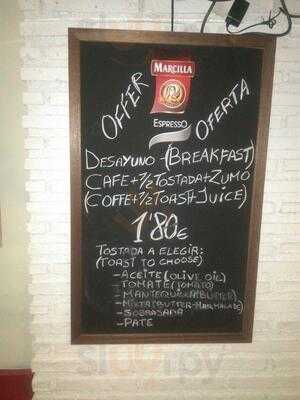 MARCILLA
ESPRESSO
OFFER
OFERTA
DESAYUNO-(BREAKFAST)
CAFE+½TOSTADA+ZUMO
(COFFE+½TOAST+JUICE)
1'80€
TOSTADA A ELEGIR:
(TOAST TO CHOOSE)
-ACEITE (OLIVE OIL)
-TOMATE (TOMATO)
-MANTEQUILLA (BUTTER)
-MIXTA (BUTTER-MARMALADE)
-SOBRASADA
-PATE